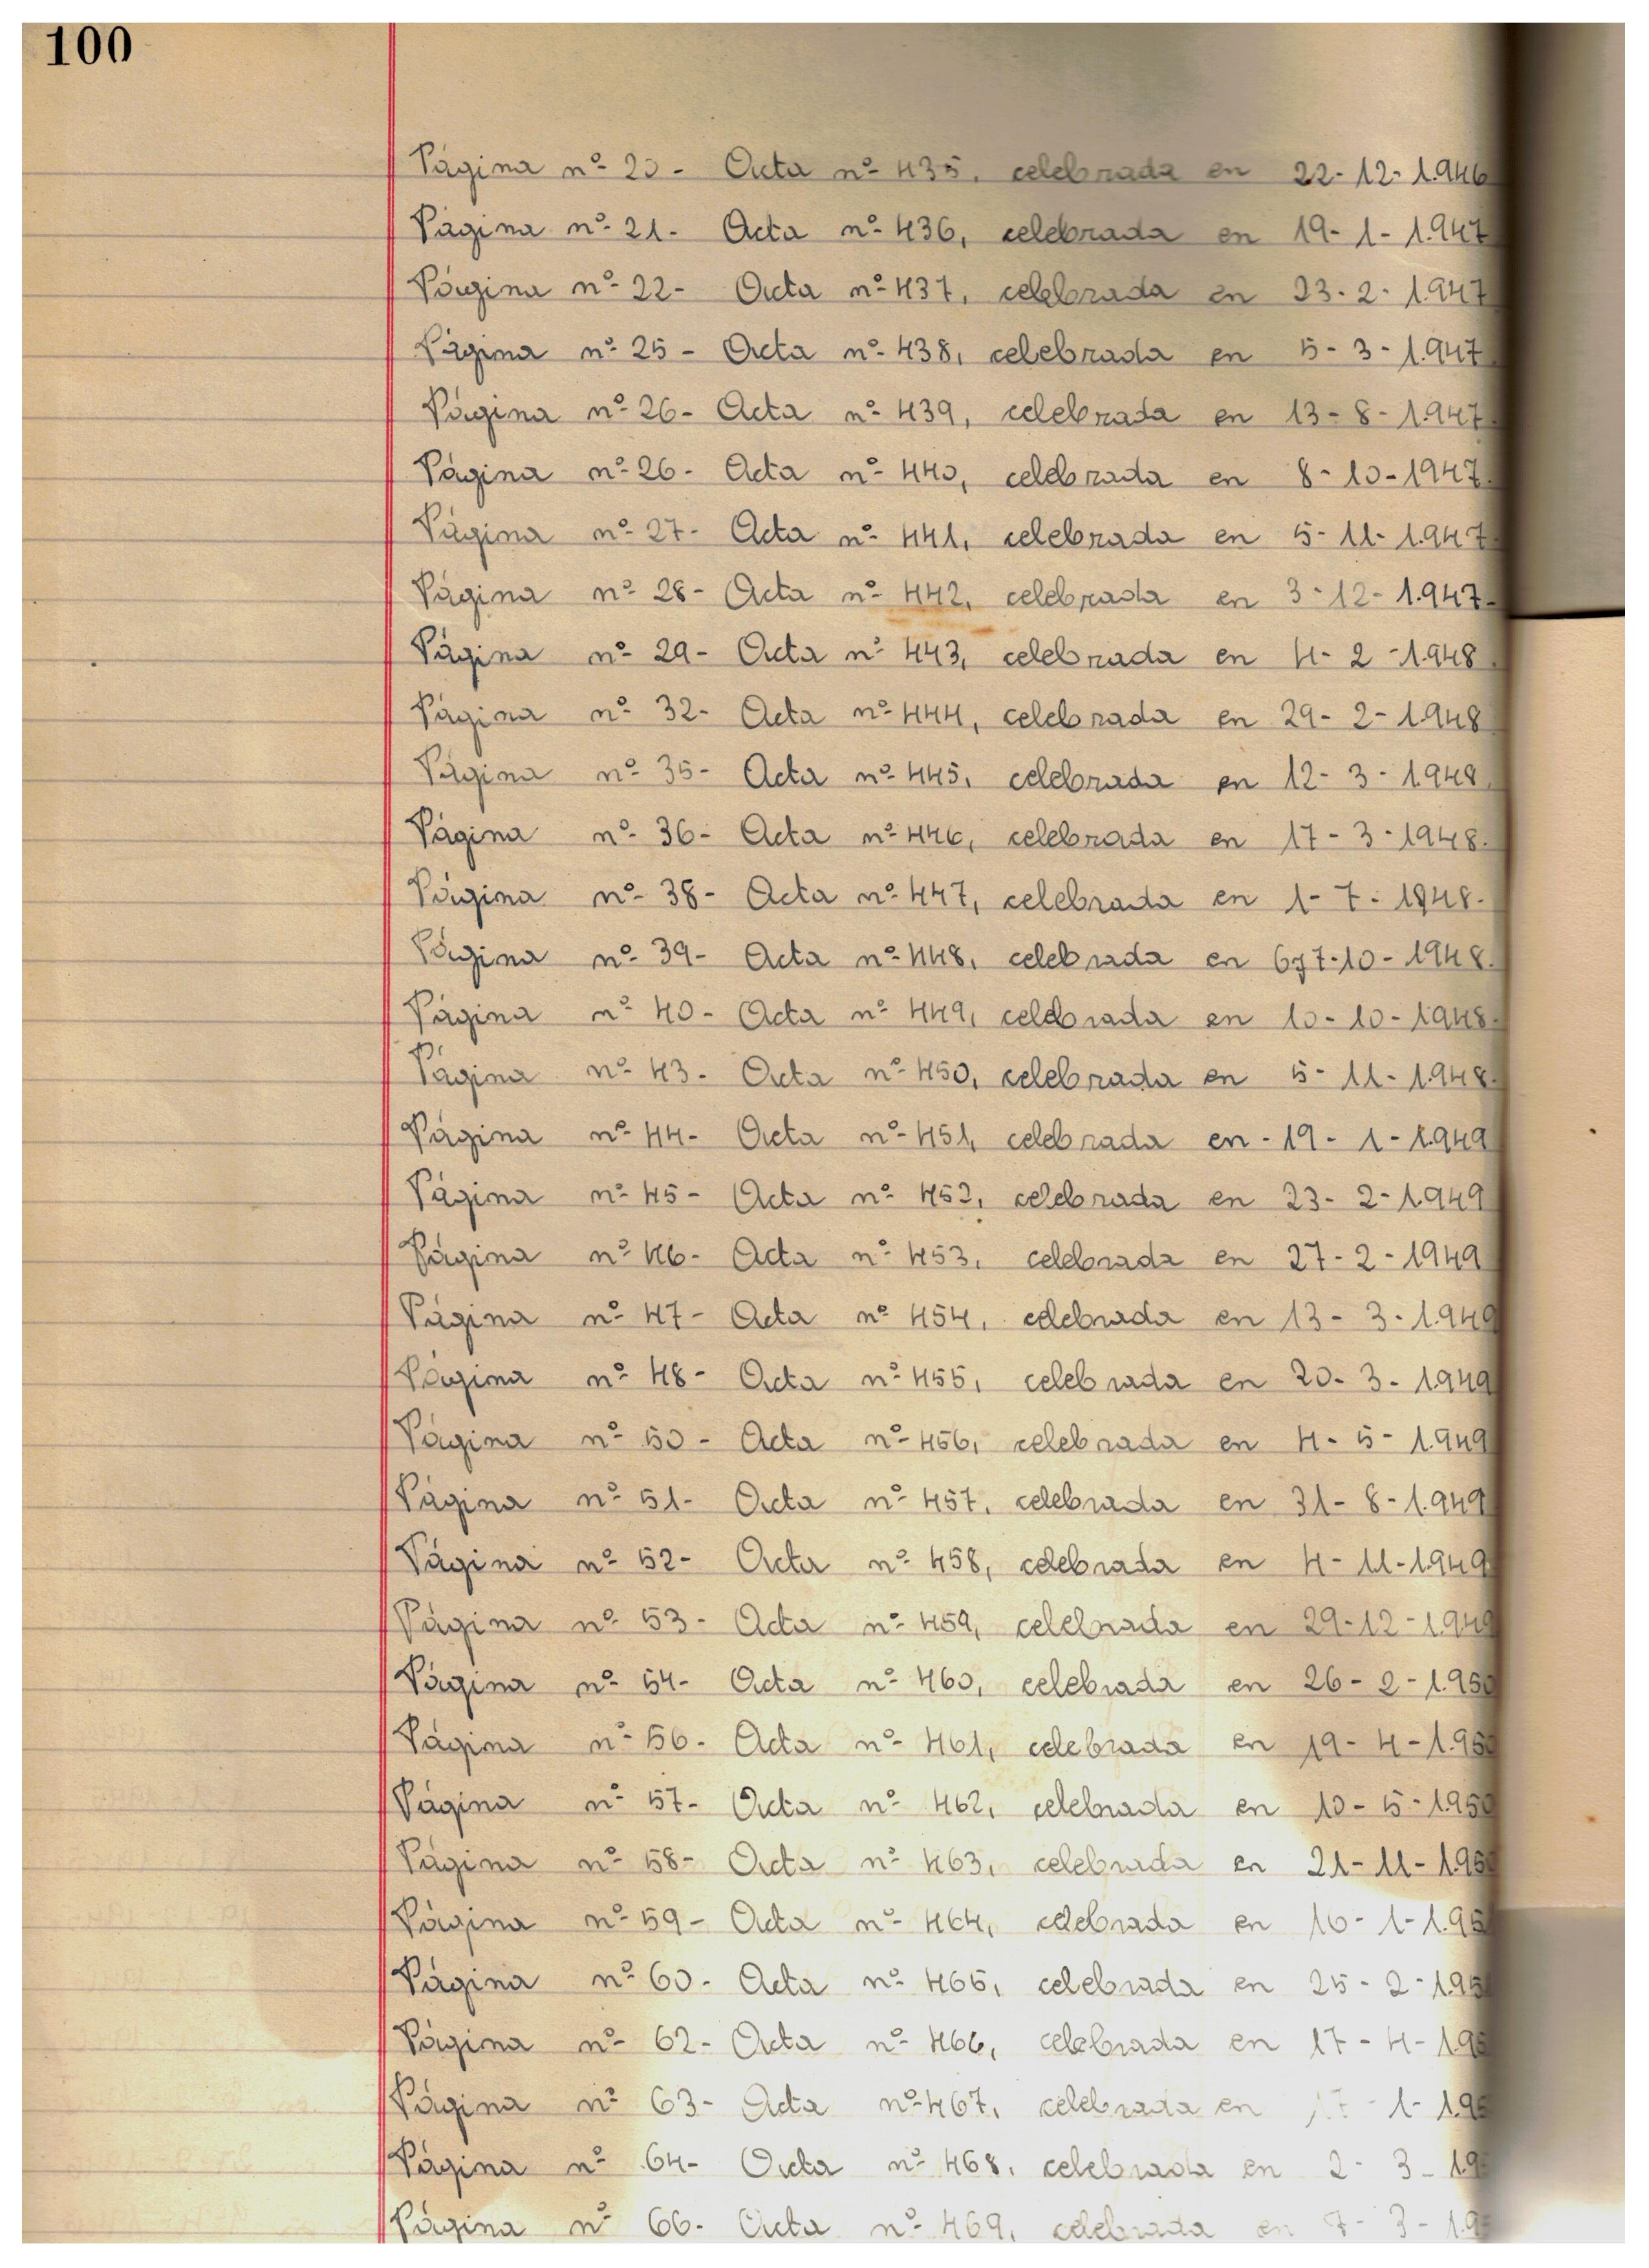 100
Página nº 20 - Acta nº 435, celebrada en 22-12-1.946
Página nº 21- Acta nº 436, celebrada en 19-1-1.947
Página nº 22- Acta nº 437, celebrada en 23-2-1.947
Página nº 25- Acta nº 438, celebrada en 5-3-1.947
Página nº 26- Acta nº 439, celebrada en 13-8-1.947.
Página nº 26- Acta nº 440, celebrada en 8-10-1947.
Página nº 27- Acta nº 441, celebrada en 5-11-1.947-
Página nº 28- Acta nº 442, celebrada en 3-12-1.947-
Página nº 29- Acta nº 443, celebrada en 4-2-1.948.
Página nº 32- Acta nº 444, celebrada en 29-2-1.948
Página nº 35- Acta nº 445, celebrada en 12-3-1.948.
Página nº 36- Acta nº 446, celebrada en 17-3-1948.
Página nº 38- Acta nº 447, celebrada en 1-7-1948-
Página nº 39- Acta nº 448, celebrada en 6y7-10-1948.
Página nº 40- Acta nº 449, celebrada en 10-10-1948-
Página nº 43- Acta nº 450, celebrada en 5-11-1.948.
Página nº 44- Acta nº 451, celebrada en-19-1-1.949
Página nº 45- Acta nº 452, celebrada en 23-2-1.949
Página nº 46- Acta nº 453, celebrada en 27-2-1949
Página nº 47- Acta nº 454, celebrada en 13-3-1.949
Página nº 48- Acta nº 455, celebrada en 20-3-1.949
Página nº 50- Acta nº 456, celebrada en 4-5-1.949
Página nº 51- Acta nº 457, celebrada en 31-8-1.949
Página nº 52- Acta nº 458, celebrada en 4-11-1.949
Página nº 53- Acta nº 459, celebrada en 29-12-1.949
Página nº 54- Acta nº 460, celebrada en 26-2-1.950
Página nº 56- Acta nº 461, celebrada en 19-4-1.950
Página nº 57- Acta nº 462, celebrada en 10-5-1.950
Página nº 58- Acta nº 463, celebrada en 21-11-1.950
Página nº 59- Acta nº 464, celebrada en 10-1-1.95
Página nº 60- Acta nº 465, celebrada en 25-2-1.95
Página nº 62- Acta nº 466, celebrada en 17-4-1.95
Página nº 63- Acta nº 467, celebrada en 1-1.95
Página nº 64- Acta nº 468, celebrada en 2-3-1.9
Página nº 66- Acta nº 469, celebrada en 7-3-1.9